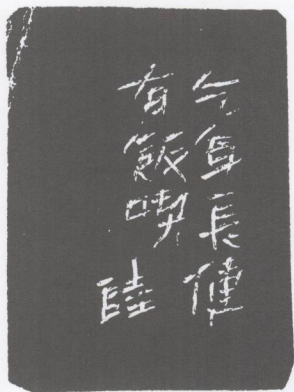 今年長健
有飯喫 陸